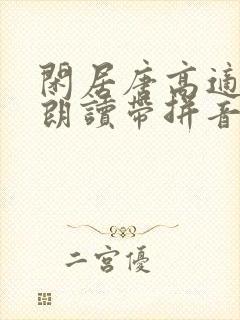 閑居唐高適
朗讀帶拼音
二宮優